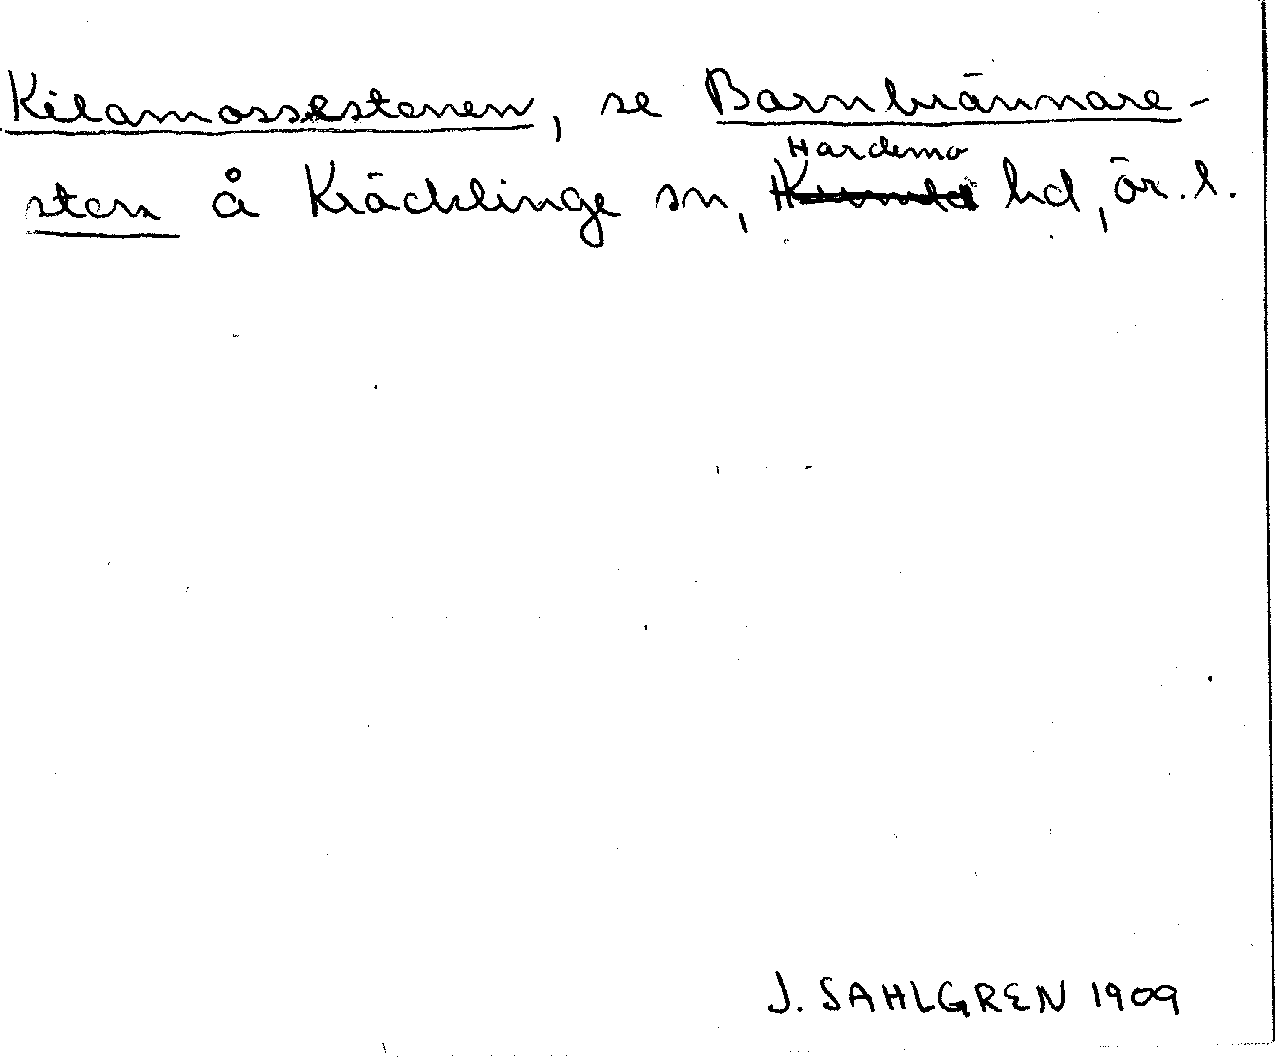 Kilamossestenen, se Barnbrännare-
sten å Kräcklinge sn, Hardemo hd, ör. l.
J. SAHLGREN 1909